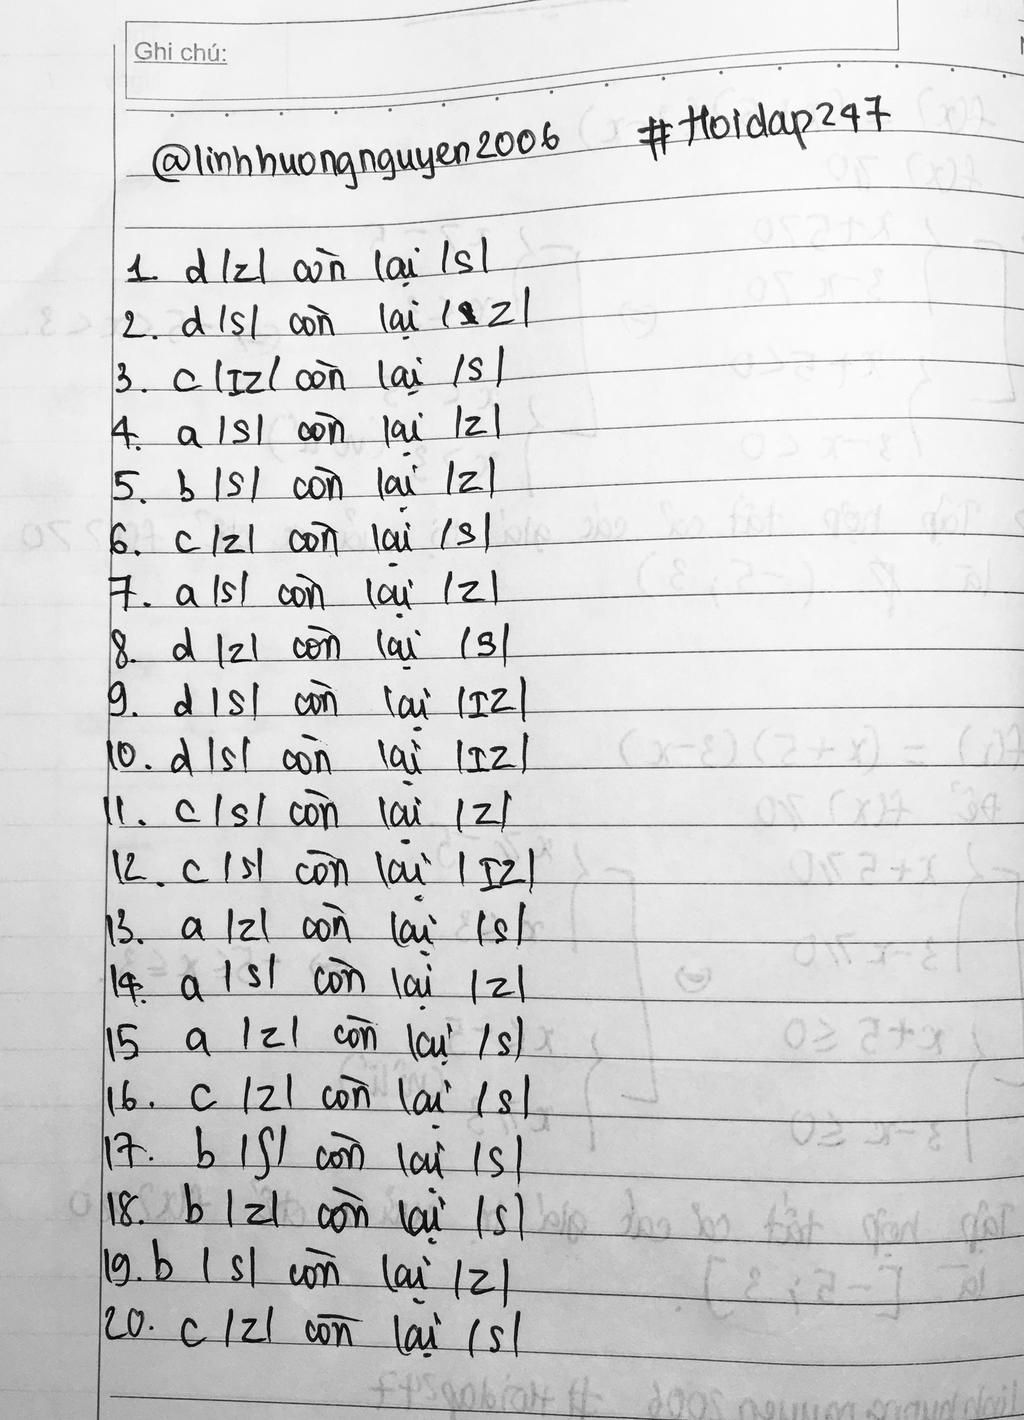 Ghi chú:
@linhhuongnguyen2006 #Hoidap247
1. d /z/ còn lại /s/
2. d /s/ còn lại /z/
3. c /Iz/ còn lại /s/
4. a /s/ còn lại /z/
5. b /s/ còn lại /z/
6. c /z/ còn lại /s/
7. a /s/ còn lại /z/
8. d /z/ còn lại /s/
9. d /s/ còn lại /IZ/
10. d /s/ còn lại /IZ/
11. c /s/ còn lại /z/
12. c /s/ còn lại /IZ/
13. a /z/ còn lại /s/
14. a /s/ còn lại /z/
15 a /z/ còn lại /s/
16. c /z/ còn lại /s/
17. b /ʃ/ còn lại /s/
18. b /z/ còn lại /s/
19. b /s/ còn lại /z/
20. c /z/ còn lại /s/